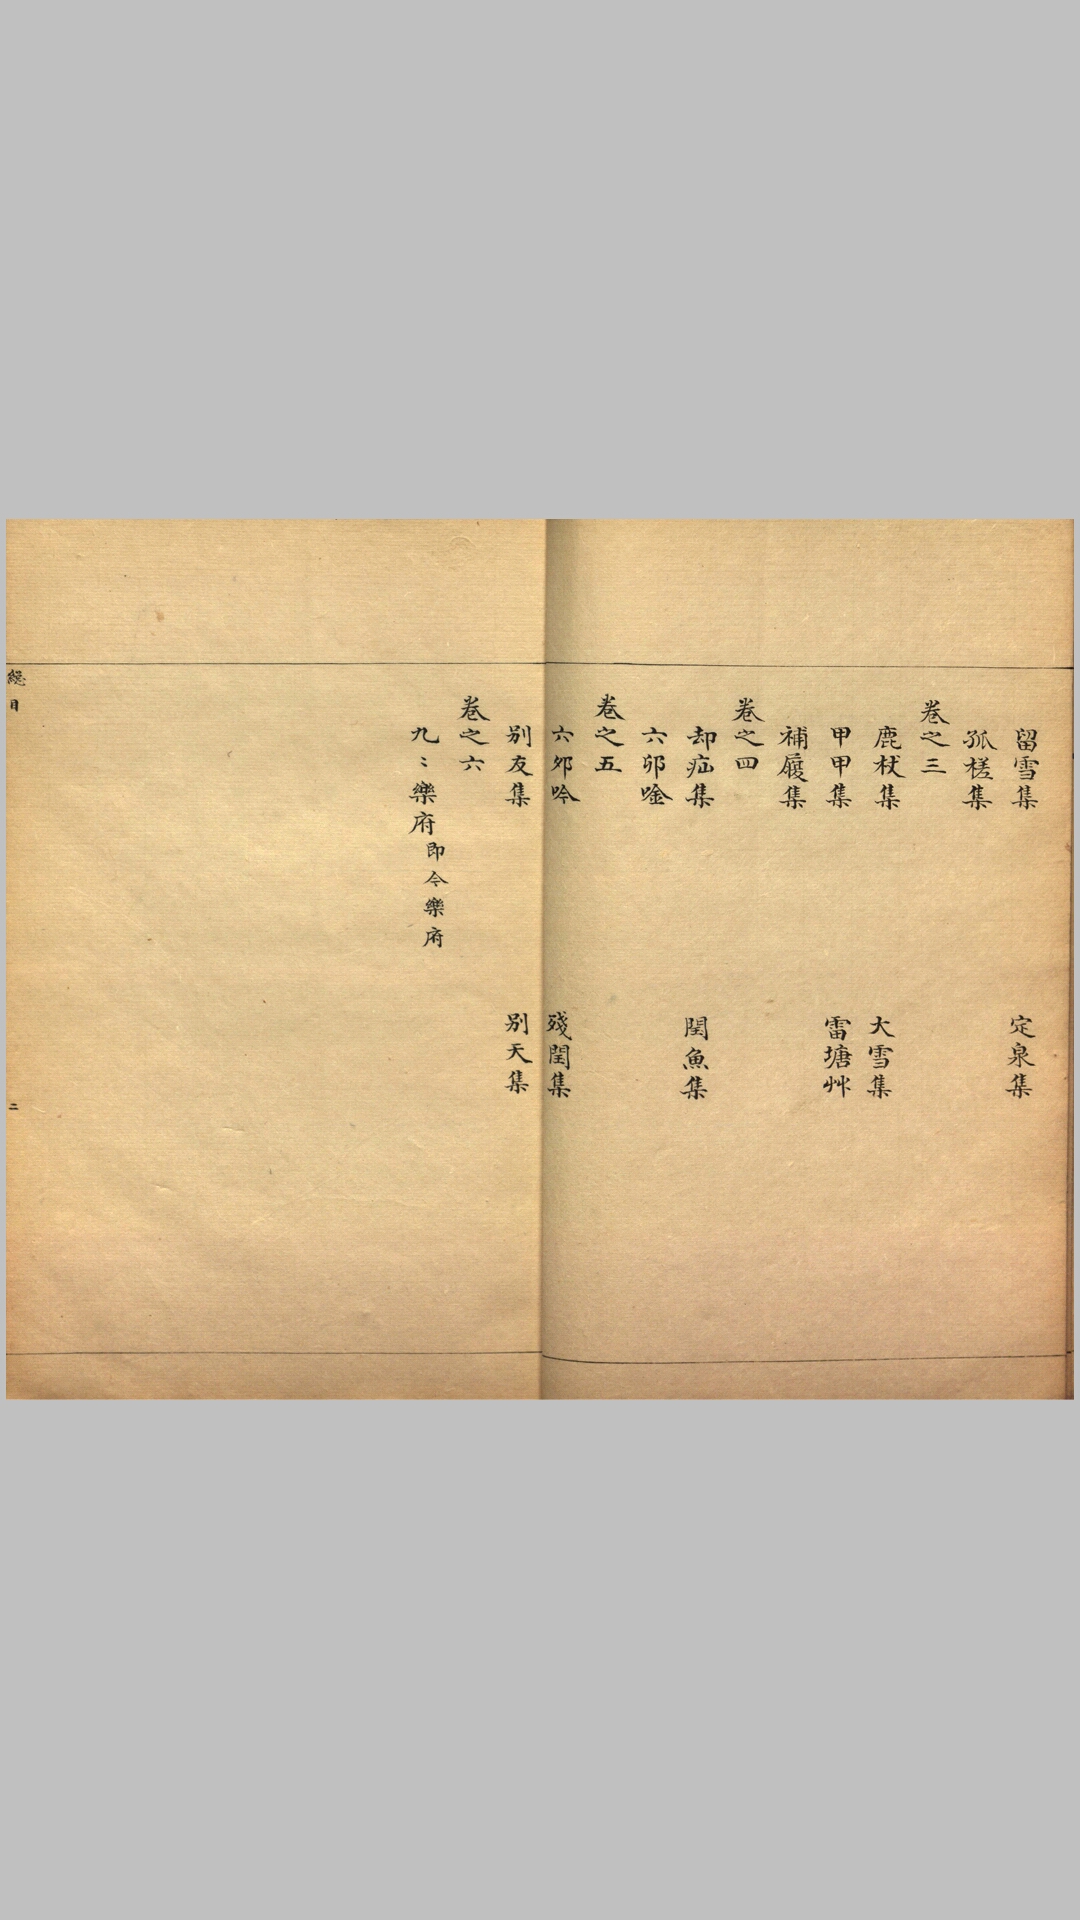 留雪集　定泉集
孤槎集
卷之三
鹿杖集　大雪集
甲甲集　雷塘艸
補履集
卷之四
却疝集　閏魚集
六卯唫
卷之五
六夘吟　殘閏集
别友集　别天集
卷之六
九〻樂府即今樂府
總目
二